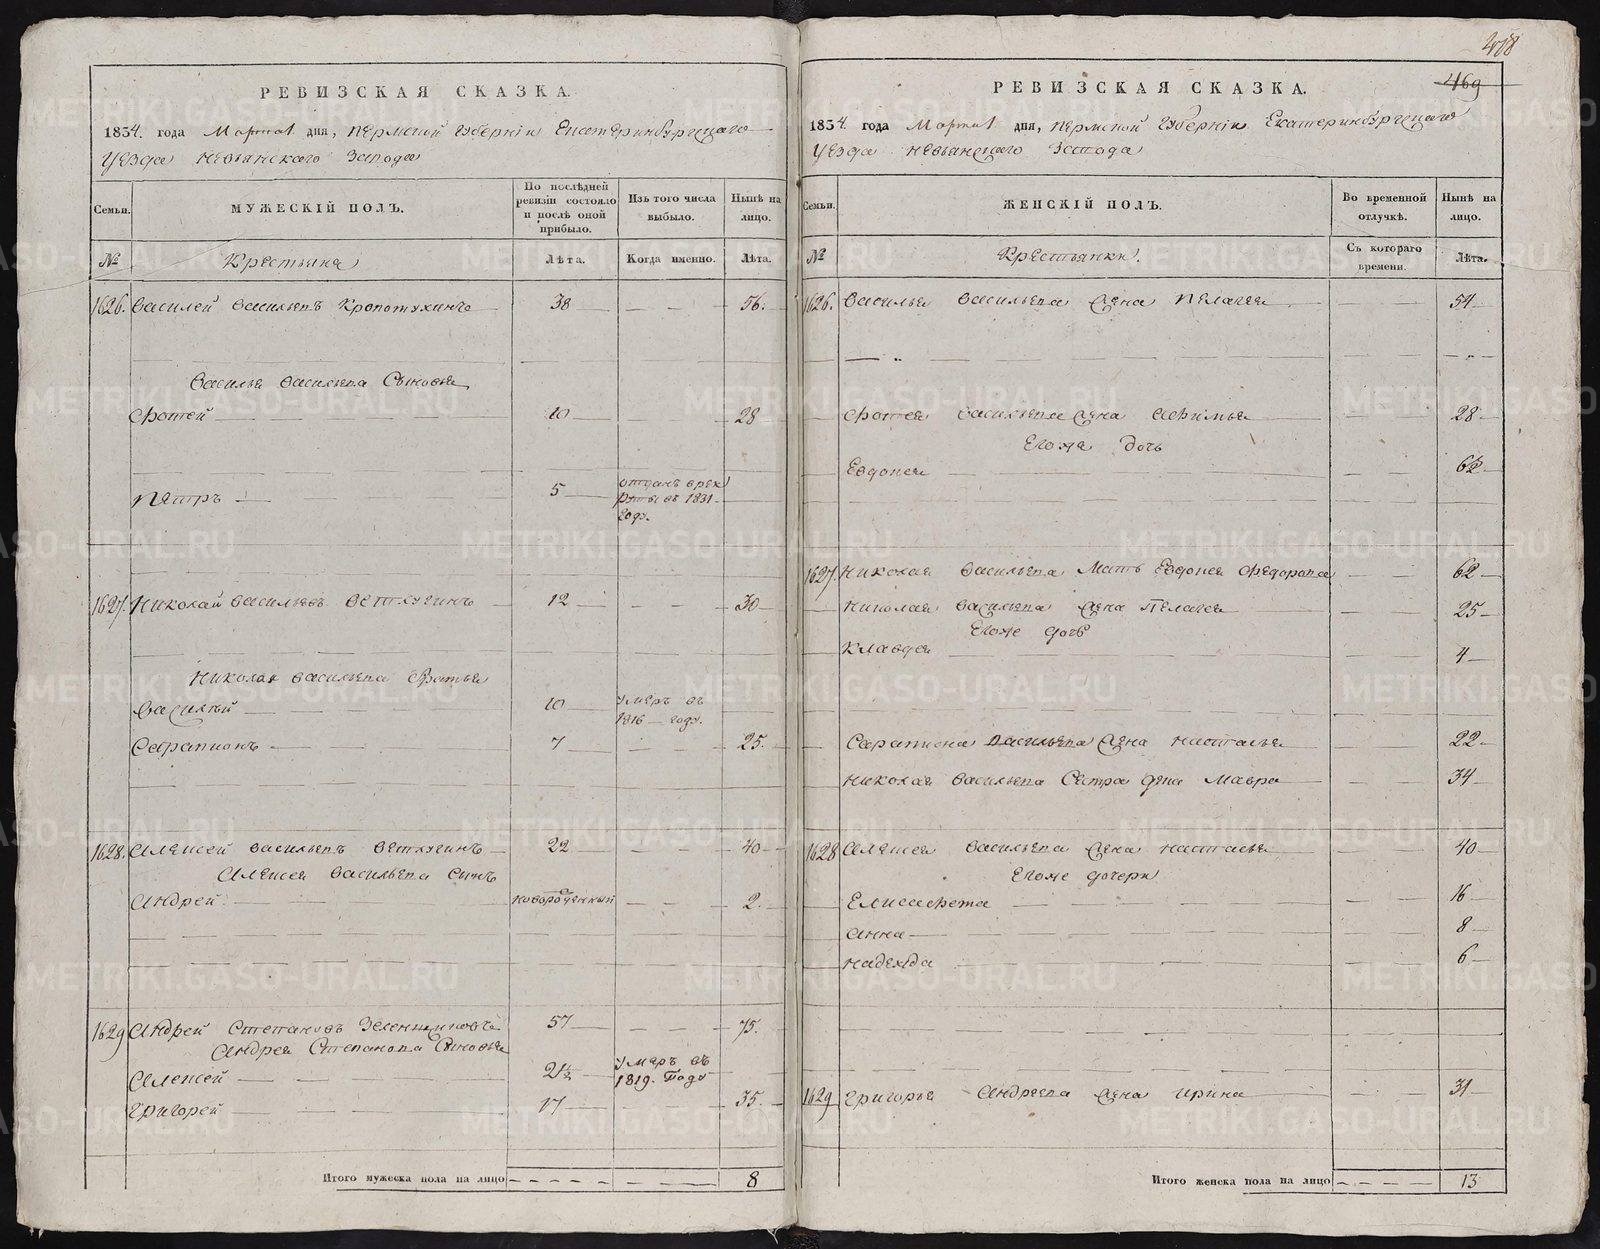 РЕВИЗСКАЯ СКАЗКА.
1834. года Марта 1 дня, Пермской Губерніи Екатеринбургскаго
Уезда Невьянскаго Завода
Семьи. МУЖЕСКІЙ ПОЛЪ. По послѣдней ревизіи состояло и послѣ оной прибыло. Изъ того числа выбыло. Нынѣ на лицо.
№ Крестьяна Лѣта. Когда именно. Лѣта.
1626. Василей Васильевъ Кропотухинъ 38 56.
Василья Васильева Сыновья
Фотей 10 28
Петръ 5 отданъ в рек
руты въ 1831
году.
1627. Николай Васильевъ Ветлугинъ 12 30
Николая Васильева Братья
Василий 10 умеръ въ
1816 году.
Серапионъ 7 25.
1628. Алексей Васильевъ Ветлугинъ 22 40
Алексея Васильева сынъ
Андрей новорожденный 2.
1629 Андрей Степановъ Зеленщиковъ 57 75.
Андрея Степанова Сыновья
Алексей 21½ умеръ въ
1819. Году
Григорей 17 35.
Итого мужеска пола на лицо 8
408
469
РЕВИЗСКАЯ СКАЗКА.
1834. года Марта 1 дня, Пермской Губерніи Екатеринбургскаго
Уезда Невьянскаго Завода
Семьи. ЖЕНСКІЙ ПОЛЪ. Во временной отлучкѣ. Нынѣ на лицо.
№ Крестьянки. Съ котораго времени. Лѣта.
1626. Василья Васильева жена Пелагея 54
Фотея Васильева жена Афимья 28
Егоже дочь
Евдокея 6½
1627. Николая Васильева Мать Евдокея Федорова 62
Николая Васильева жена Пелагея 25
Егоже дочь
Клавдея 4
Сарапиона Васильева жена Настасья 22
Николая Васильева Сестра дева Мавра 34
1628 Алексея Васильева жена Настасья 40
Егоже дочери
Елисавета 16
Анна 8
Надежда 6
1629 Григорья Андреева жена Ирина 31
Итого женска пола на лицо 13
METRIKI.GASO-URAL.RU